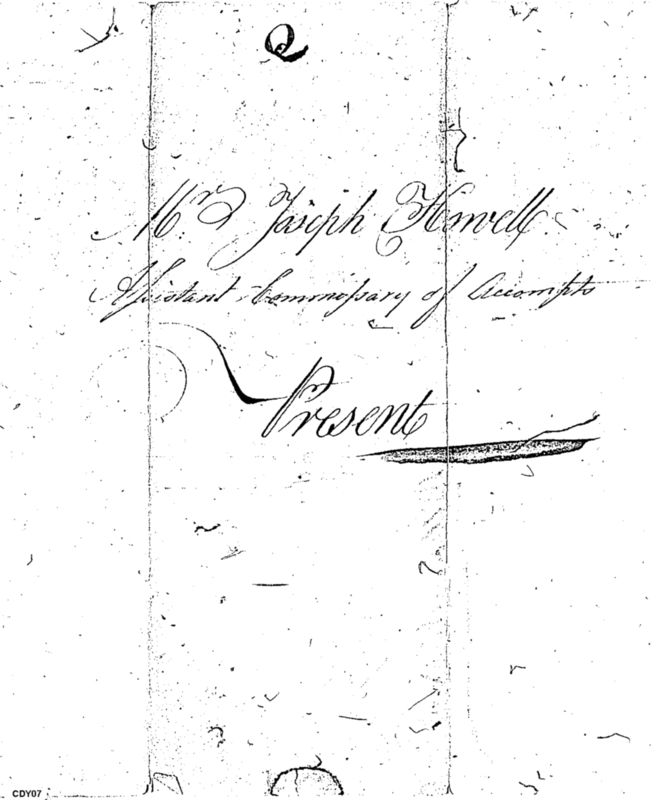 Q
Mr. Joseph Howell
Assistant Commissary of Accompts
Present
CDY07